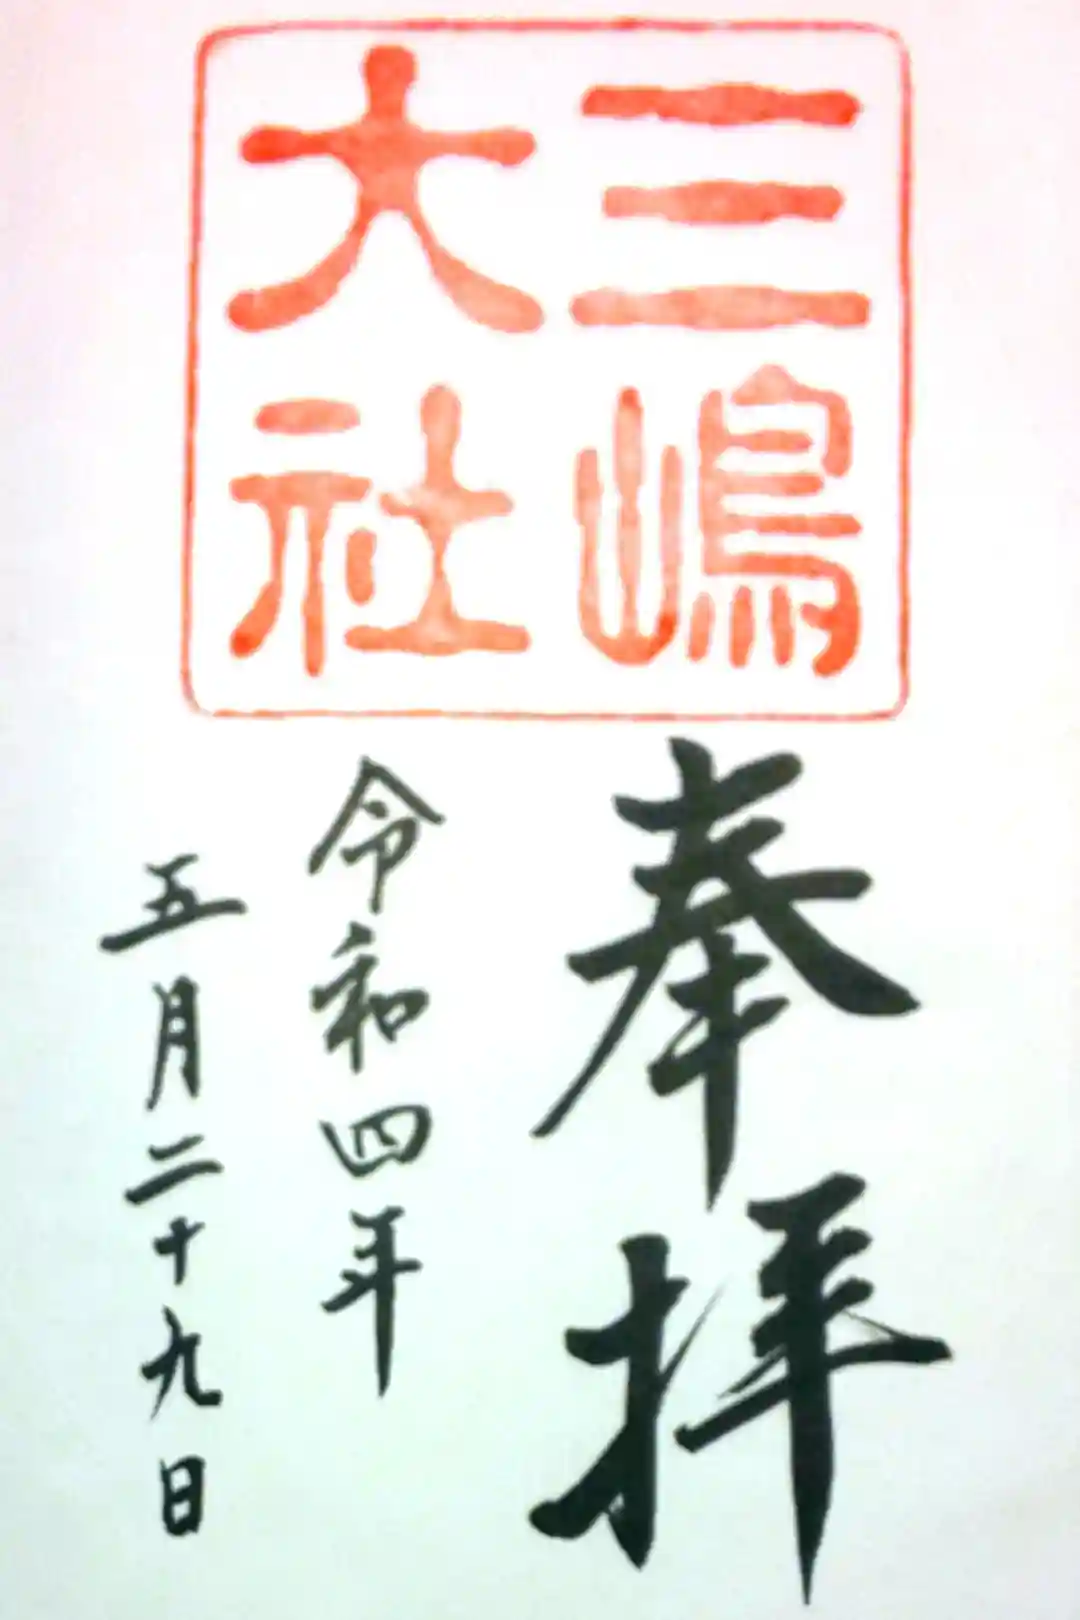 三嶋
大社
奉拝
令和四年
五月二十九日